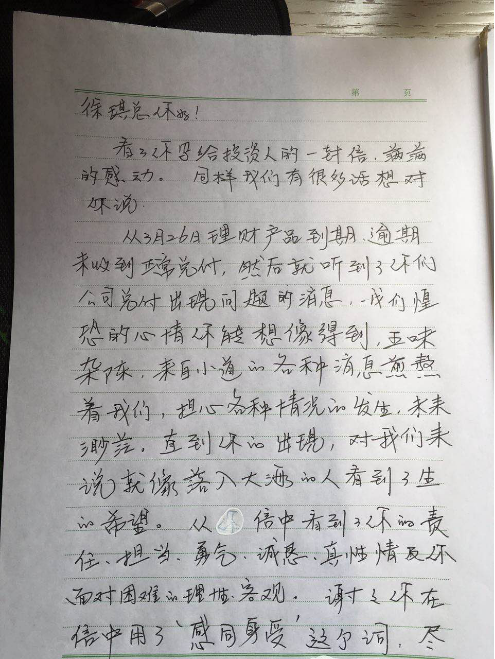 第 页
徐琪总你好!
看了你写给投资人的一封信,满满
的感动。同样我们有很多话想对
你说.
从3月26日理财产品到期,逾期
未收到正常兑付,然后就听到了你们
公司兑付出现问题的消息,我们惶
恐的心情你能想像得到,五味
杂陈,来自小道的各种消息煎熬
着我们,担心各种情况的发生,未来
渺茫。直到你的出现,对我们来
说就像落入大海的人看到了生
的希望。从 信中看到了你的责
任、担当、勇气、诚恳、真性情及你
面对困难的理性、客观。谢谢你在
信中用了“感同身受”这个词,尽